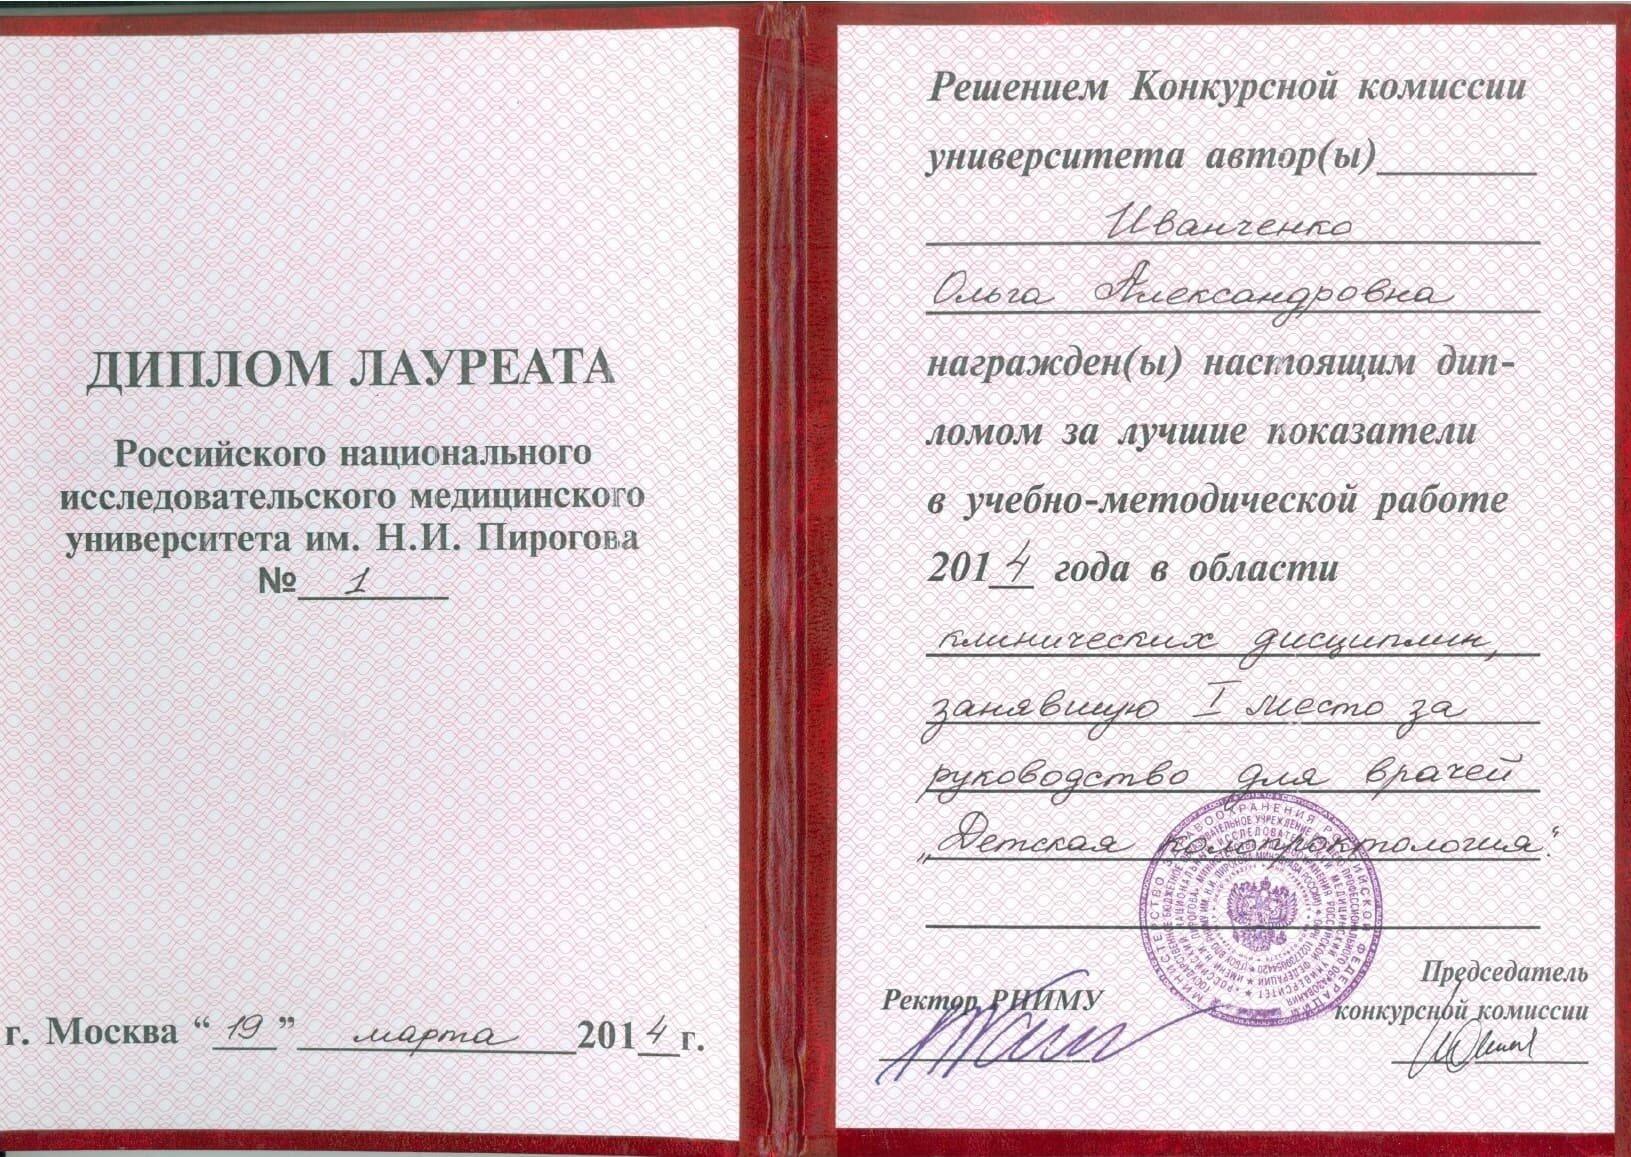 ДИПЛОМ ЛАУРЕАТА
Российского национального
исследовательского медицинского
университета им. Н.И. Пирогова
№ 1
г. Москва “ 19 ” марта 2014 г.
Решением Конкурсной комиссии
университета автор(ы)
Иванченко
Ольга Александровна
награжден(ы) настоящим дип-
ломом за лучшие показатели
в учебно-методической работе
2014 года в области
клинических дисциплин,
занявшую I место за
руководство для врачей
„Детская колопроктология“.
Ректор РНИМУ
Председатель
конкурсной комиссии
МИНИСТЕРСТВО ЗДРАВООХРАНЕНИЯ РОССИЙСКОЙ ФЕДЕРАЦИИ